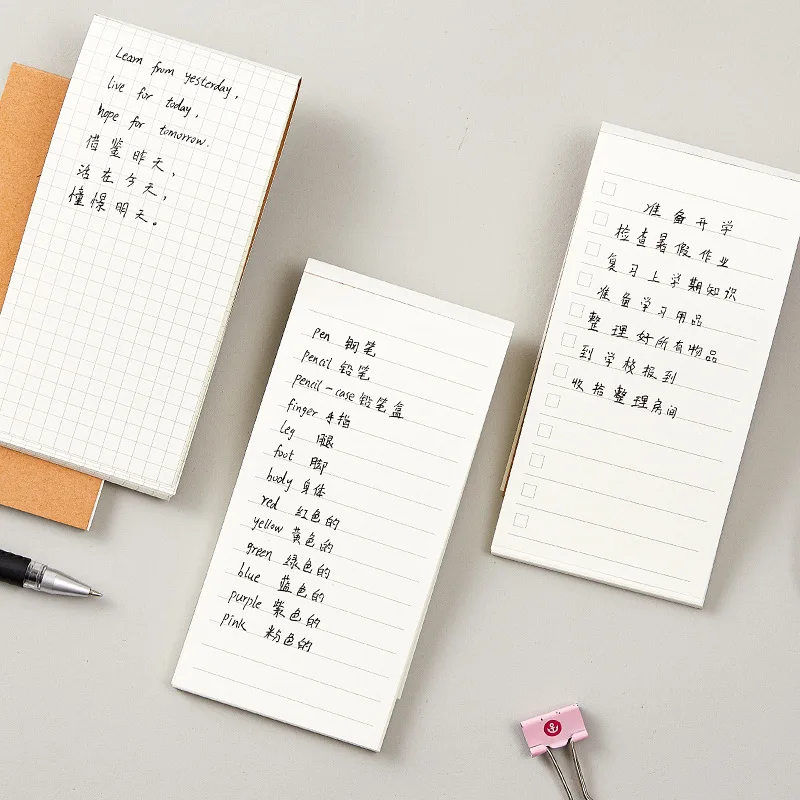 Learn from yesterday,
live for today,
hope for tomorrow.
借鉴昨天,
活在今天,
憧憬明天。
pen 钢笔
pencil 铅笔
pencil-case 铅笔盒
finger 手指
leg 腿
foot 脚
body 身体
red 红色的
yellow 黄色的
green 绿色的
blue 蓝色的
purple 紫色的
pink 粉色的
准备开学
检查暑假作业
复习上学期知识
准备学习用品
整理好所有物品
到学校报到
收拾整理房间